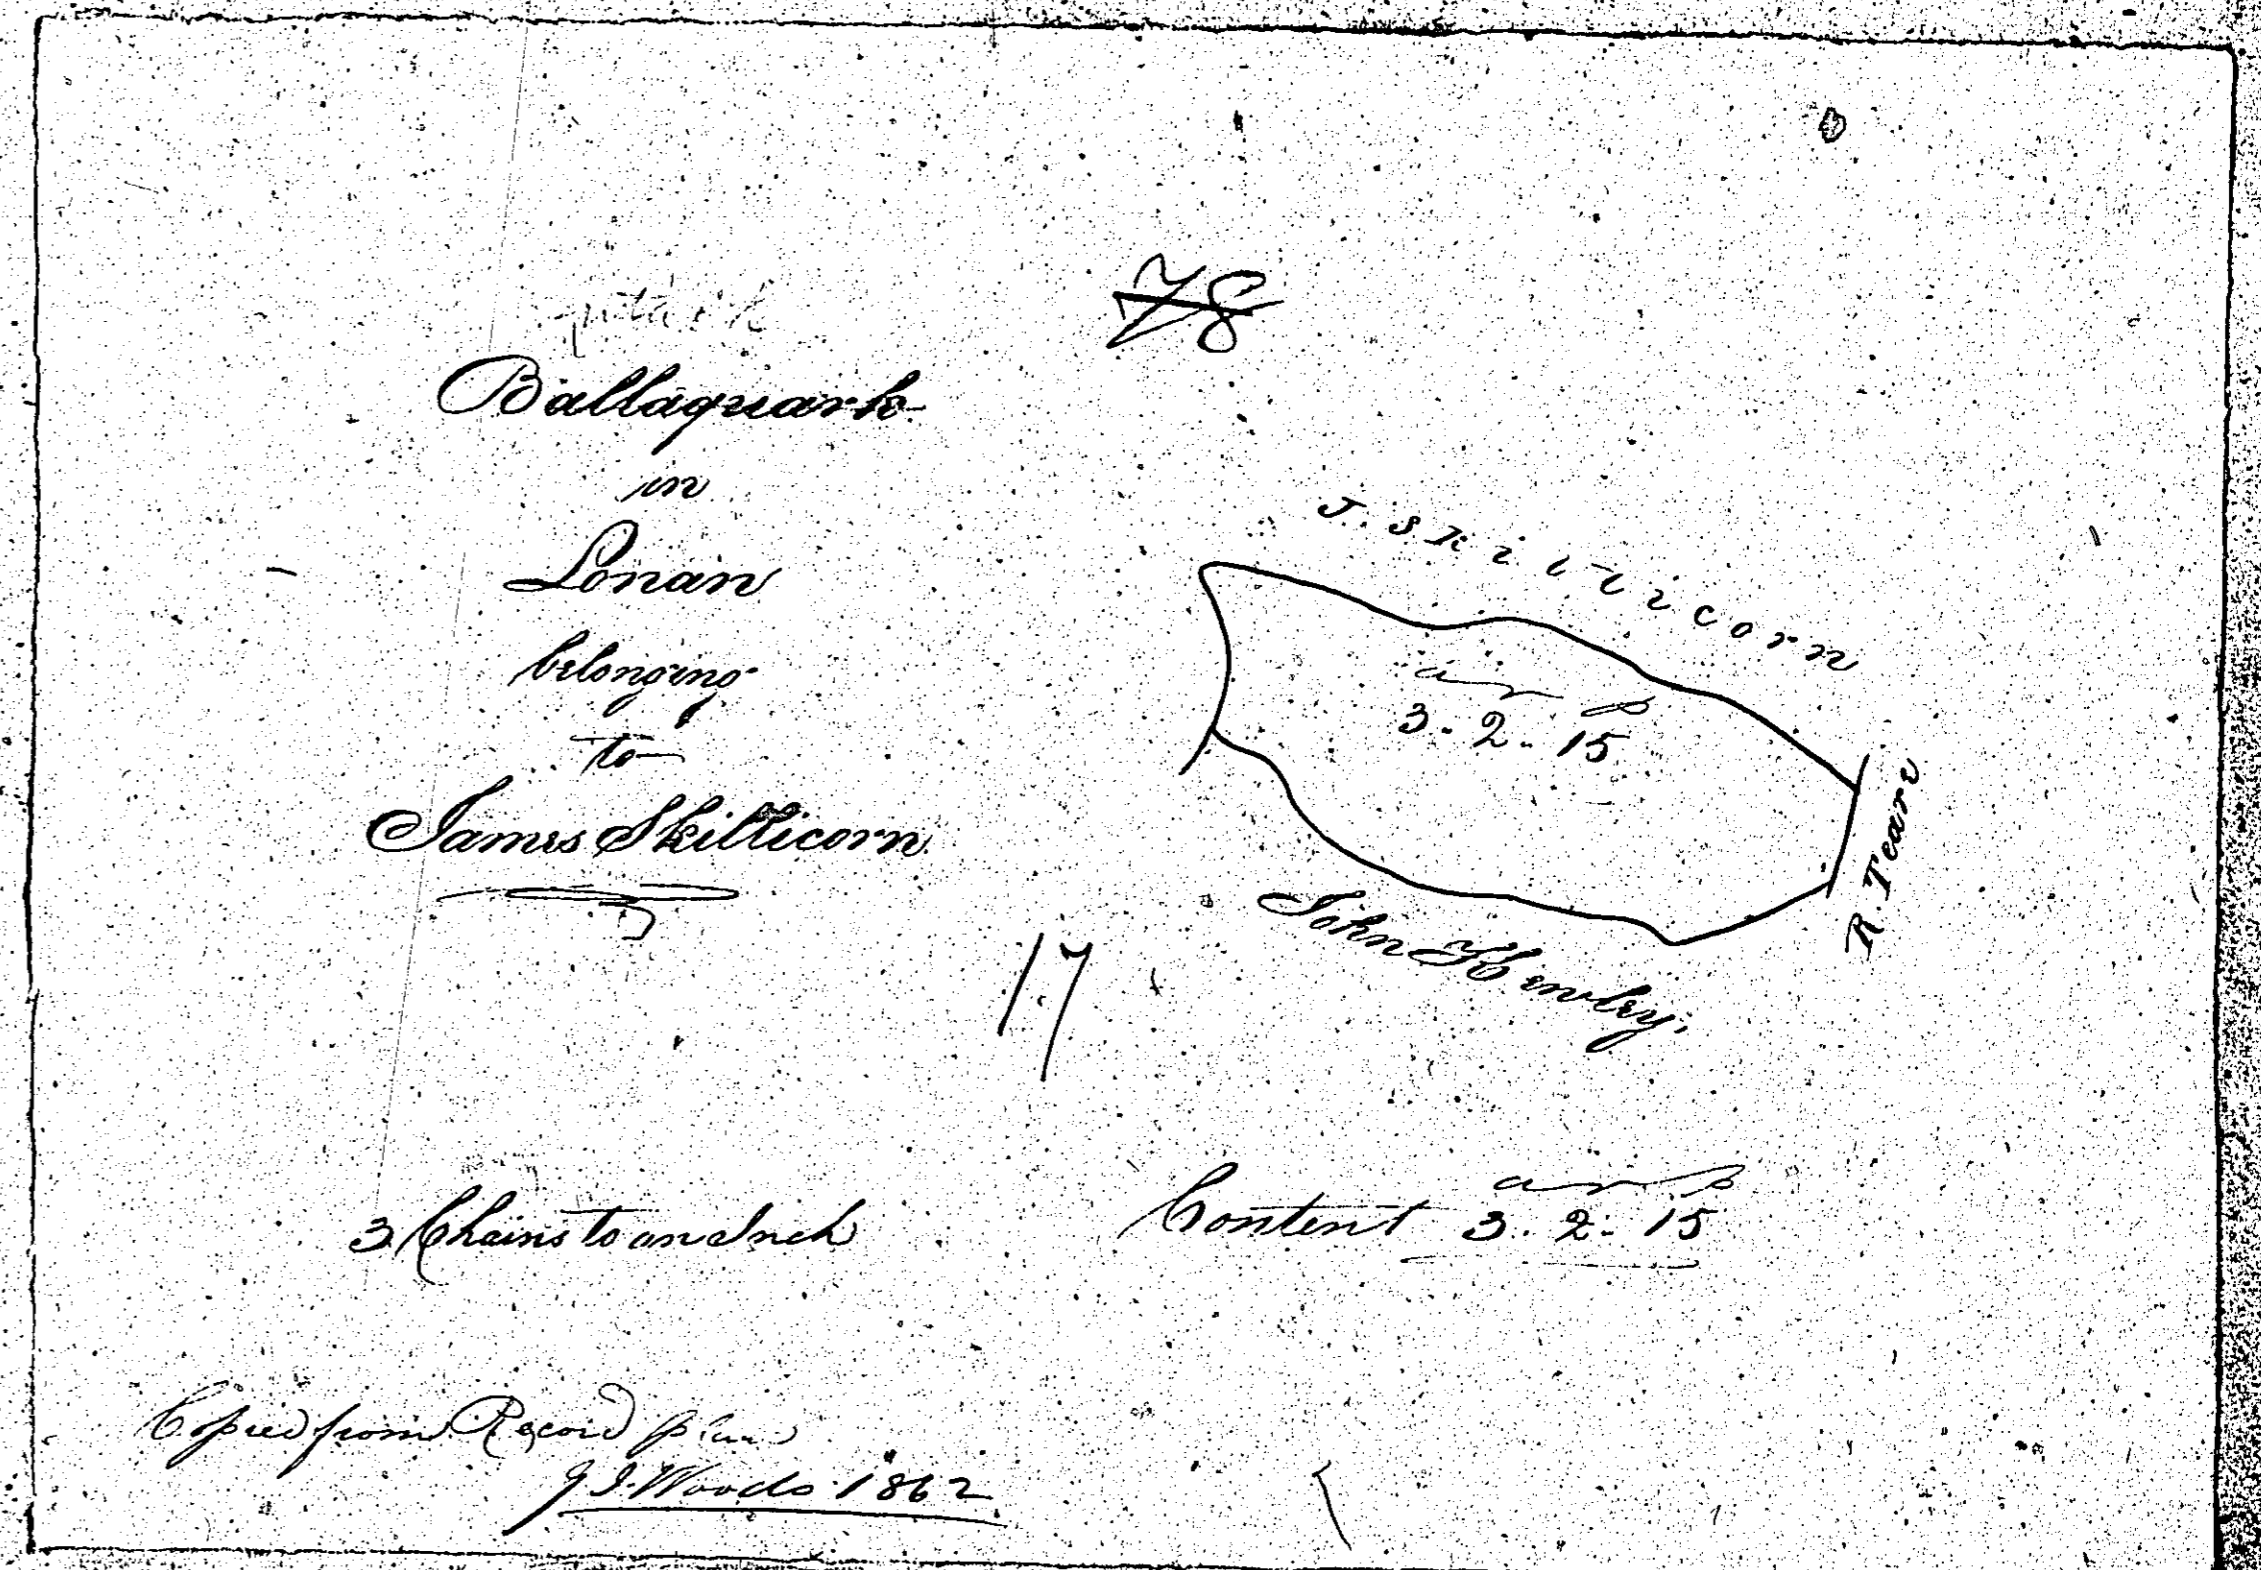 78
Ballaquark
in
Lonan
belonging
to
James Skillicorn
J. Skillicorn
a r p
3. 2. 15
R. Teare
John Kewley.
17
3 Chains to an Inch
Content a r p
3. 2. 15
Copied from Record plan
J I Woods 1862